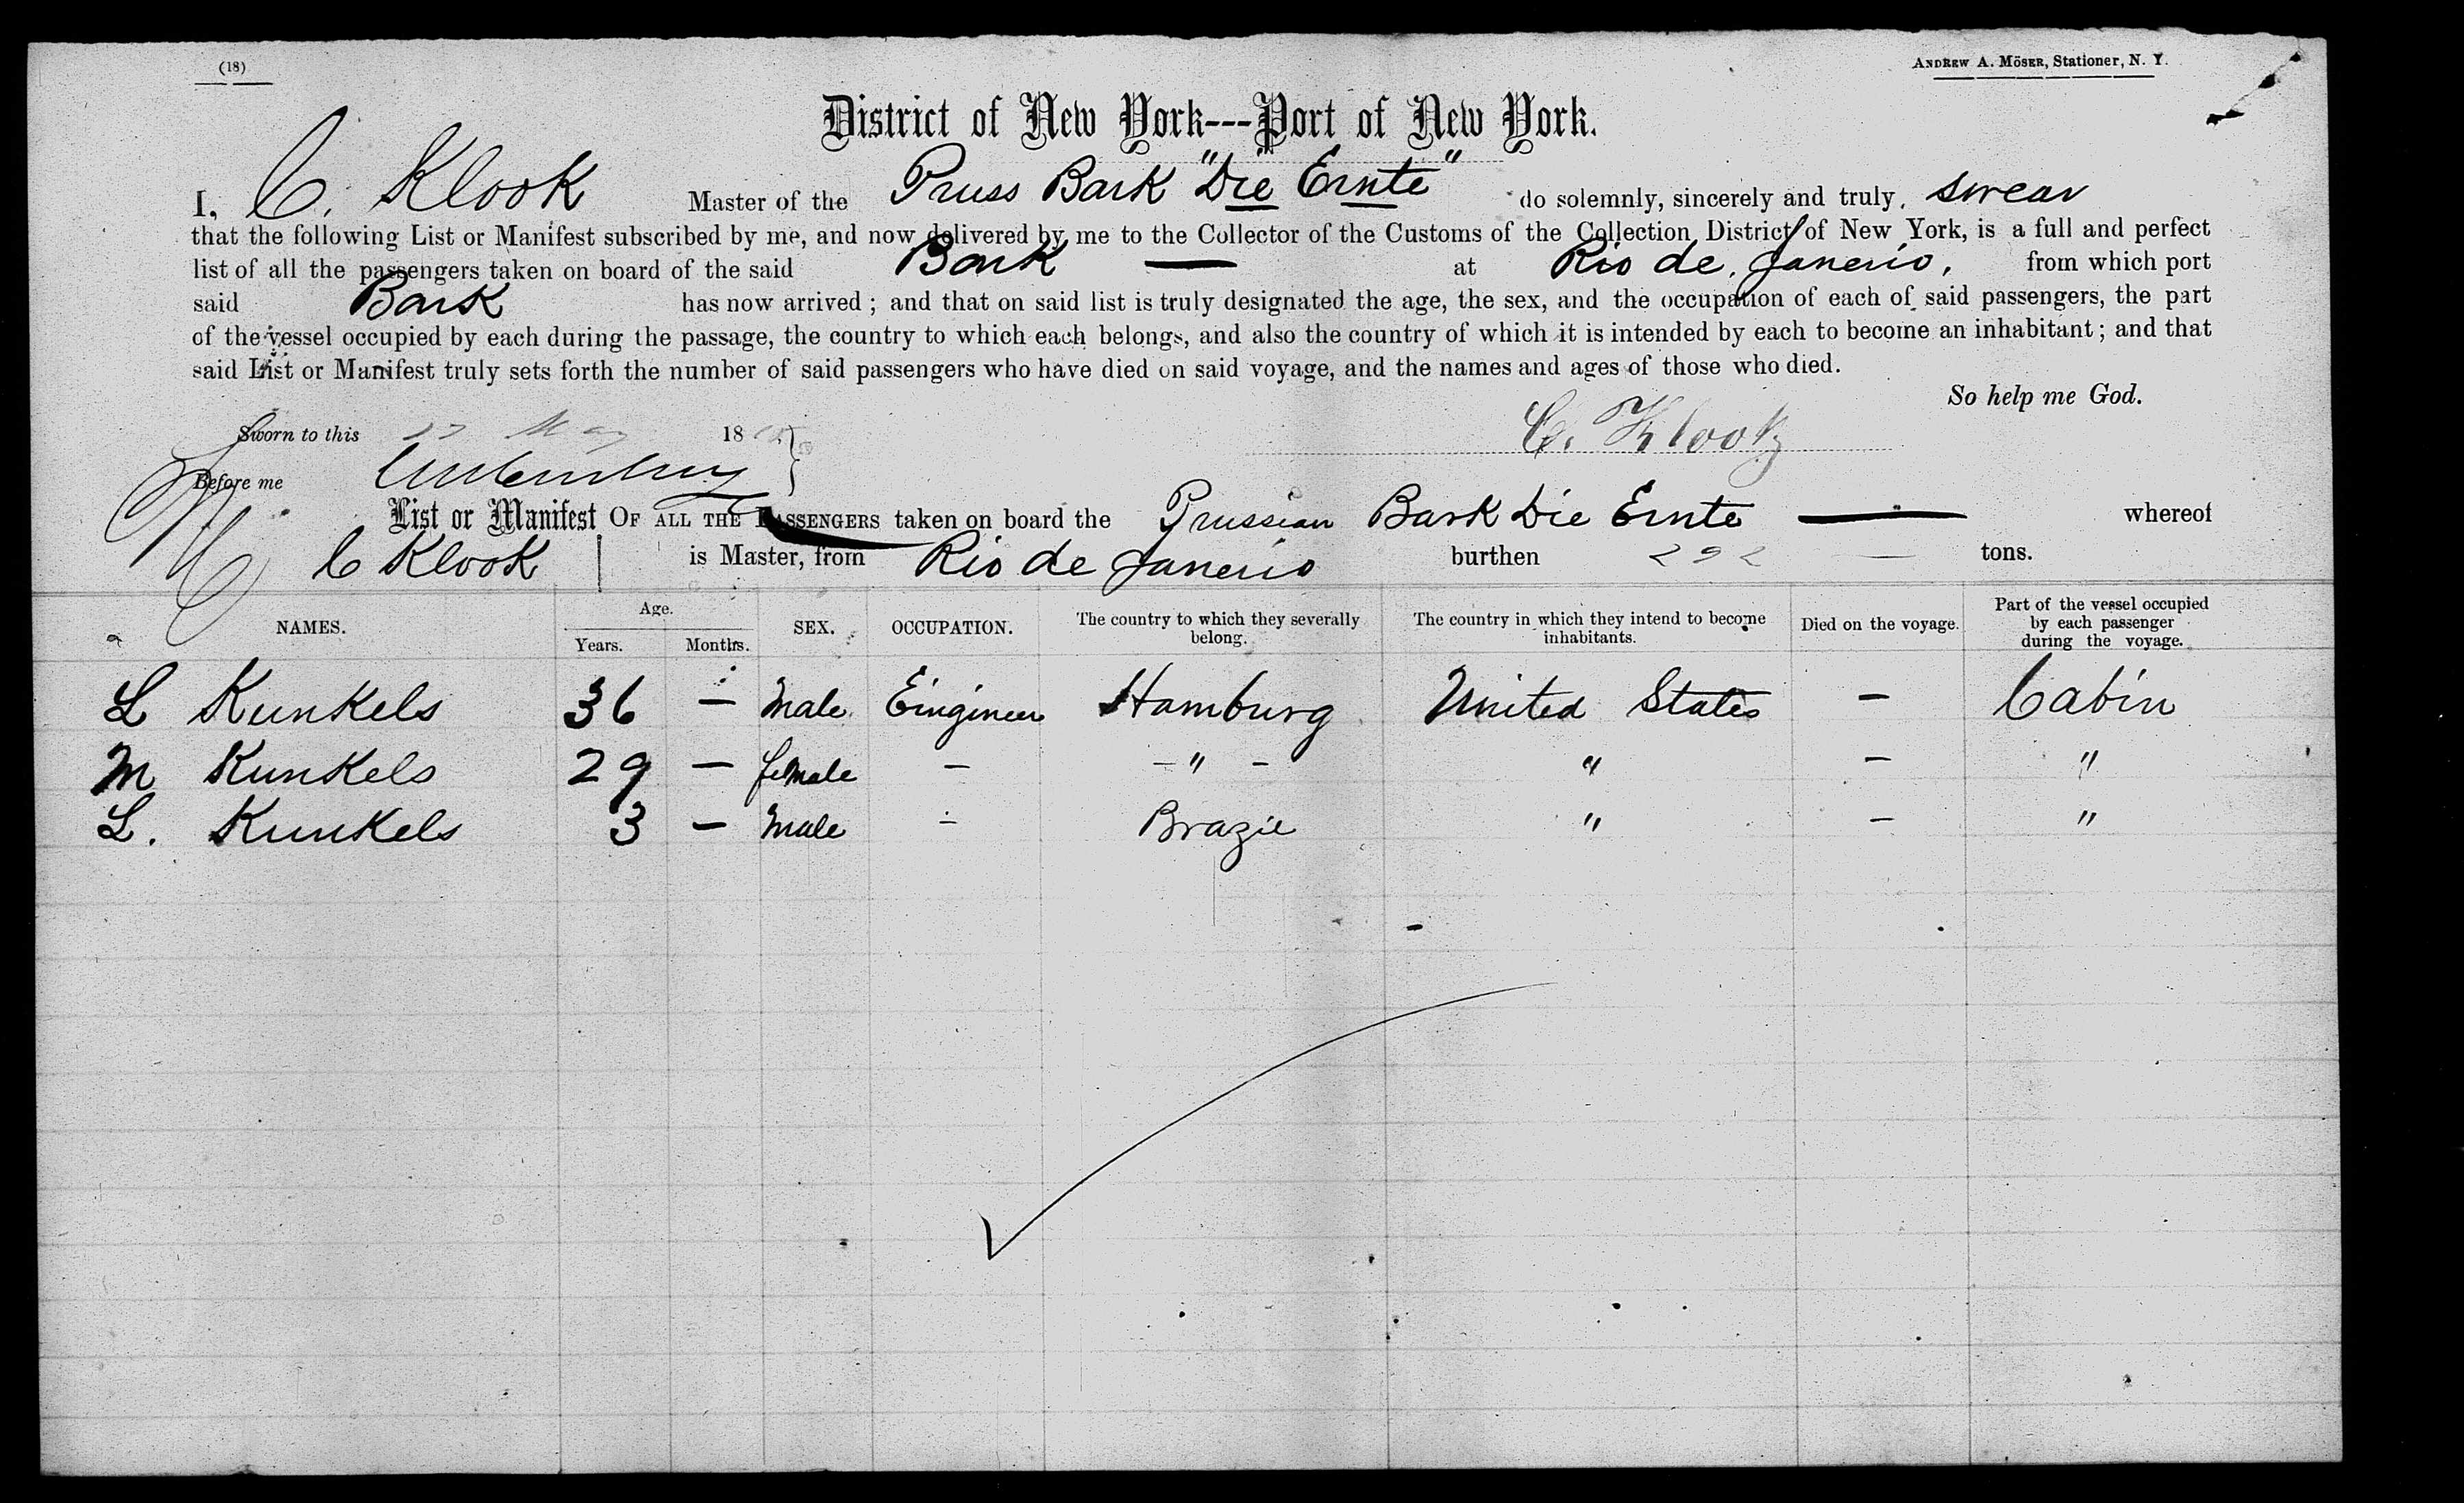 (18)
ANDREW A. MÖSER, Stationer, N. Y.
District of New York---Port of New York.
I, C. Klook Master of the Pruss Bark "Die Ernte" do solemnly, sincerely and truly, swear
that the following List or Manifest subscribed by me, and now delivered by me to the Collector of the Customs of the Collection District of New York, is a full and perfect
list of all the passengers taken on board of the said Bark — at Rio de Janerio, from which port
said Bark has now arrived; and that on said list is truly designated the age, the sex, and the occupation of each of said passengers, the part
of the vessel occupied by each during the passage, the country to which each belongs, and also the country of which it is intended by each to become an inhabitant; and that
said List or Manifest truly sets forth the number of said passengers who have died on said voyage, and the names and ages of those who died.
So help me God.
Sworn to this May 18
C. Klook
Before me
List or Manifest OF ALL THE PASSENGERS taken on board the Prussian Bark Die Ernte — whereof
C Klook is Master, from Rio de Janerio burthen 292 — tons.
NAMES. Age. Years. Months. SEX. OCCUPATION. The country to which they severally belong. The country in which they intend to become inhabitants. Died on the voyage. Part of the vessel occupied by each passenger during the voyage.
L Kunkels 36 — Male Eingineer Hamburg United States — Cabin
M Kunkels 29 — female — — " — " — "
L. Kunkels 3 — Male — Brazil " — "